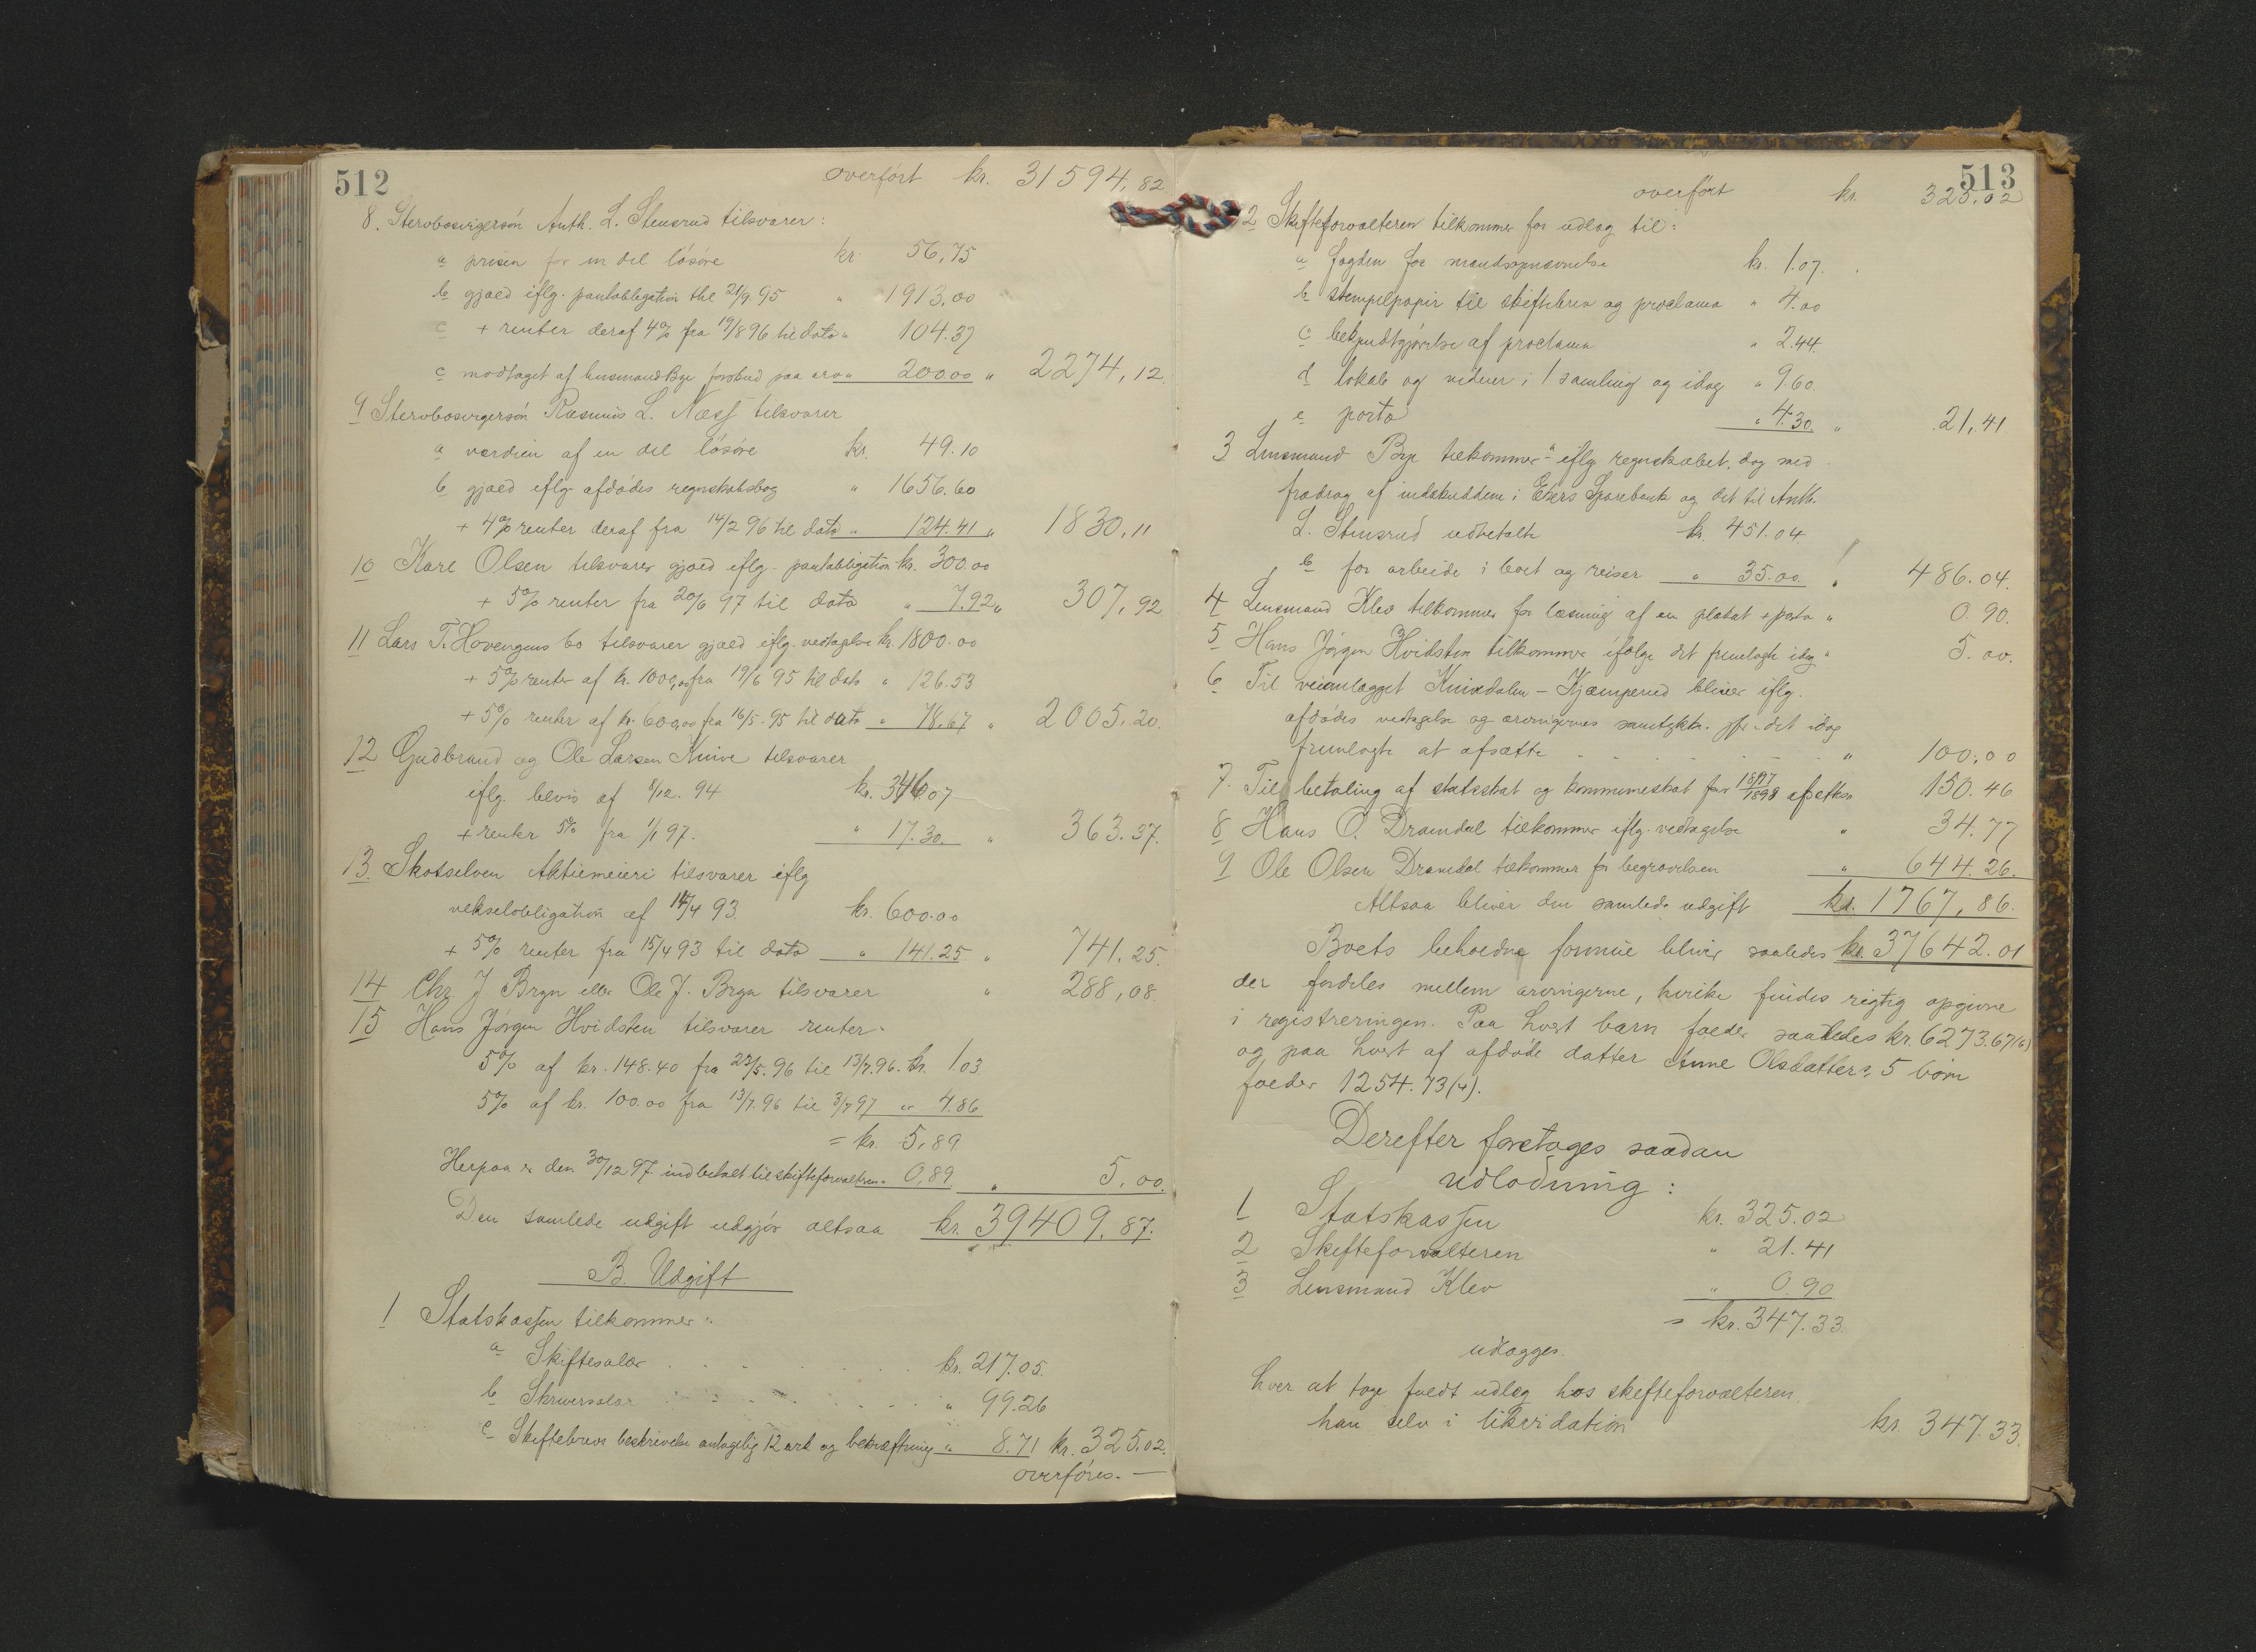 512
overført kr. 31594,82
8. Stervbosvigersøn Anth. L. Stensrud tilsvarer:
a prisen for en del løsøre kr. 56,75
b gjæld iflg. pantobligation thl 21/9 95 " 1913,00
c + renter deraf 4% fra 19/8 96 til dato " 104.37
c modtaget af lensmand Bye forskud paa arv " 200.00 " 2274,12
9 Stervbosvigersøn Rasmus L. Næss tilsvarer
a værdien af en del løsøre kr. 49.10
b gjæld iflg. afdødes regnskabsbog " 1656.60
+ 4% renter deraf fra 14/2 96 til dato " 124.41 " 1830,11
10 Karl Olsen tilsvarer gjæld iflg. pantobligation kr. 300.00
+ 5% renter fra 20/6 97 til dato " 7.92 " 307,92
11 Lars T. Hovengens bo tilsvarer gjæld iflg. vedtagelse kr. 1800.00
+ 5% renter af kr. 1000,00 fra 19/6 95 til dato " 126.53
+ 5% renter af kr. 600,00 fra 16/5. 95 til dato " 78.67 " 2005,20.
12 Gudbrand og Ole Larsen Knive tilsvarer
iflg. bevis af 8/12. 94 kr. 346.07
+ renter 5% fra 1/1 97. " 17.30. " 363.37.
13. Skotselven Aktiemeieri tilsvarer iflg
vekselobligation af 14/4 93. kr. 600.00
+ 5% renter fra 15/4 93 til dato " 141.25 " 741,25.
14 Chr. J Bryn eller Ole J. Bryn tilsvarer " 288,08.
15 Hans Jørgen Hvidsten tilsvarer renter:
5% af kr. 148.40 fra 23/5. 96 til 13/7. 96. kr. 1.03
5% af kr. 100.00 fra 13/7. 96 til 3/7 97 " 4.86
= kr. 5,89
Herpaa er den 30/12 97. indbetalt til skifteforvalteren " 0,89 " 5,00.
Den samlede udgift udgjør altsaa kr. 39409.87.
B. Udgift
1 Statskassen tilkommer:
a Skiftesalær kr. 217.05.
b Skriversalær " 99.26
c Skiftebrevs beskrivelse antagelig 12 ark og bekræftning " 8.71 kr. 325,02.
overføres. —
513
overført kr. 325.02
2 Skifteforvalteren tilkommer for udlæg til:
a fogden for mandsopnævnelse kr. 1.07.
b stempelpapir til skiftebrev og proclama " 4.00
c bekjendtgjørelse af proclama " 2.44.
d lokale og vidner i 1 samling og idag " 9.60.
e porto " 4.30. " 21,41
3 Lensmand Bye tilkommer a iflg regnskabet, dog med
fradrag af indskuddene i Ekers Sparebank og det til Anth.
L. Stensrud udbetalte kr. 451.04.
b for arbeide i boet og reiser " 35.00. " 486.04.
4 Lensmand Klev tilkommer for læsning af en plakat + porto " 0.90.
5 Hans Jørgen Hvidsten tilkommer ifølge det fremlagte idag " 5.00.
6 Til veianlægget Knivedalen - Kjæmperud bliver iflg.
afdødes vedtagelse og arvingernes samtykke. jfr. det idag
fremlagte at afsætte " 100.00
7. Til betaling af statsskat og kommuneskat for 1897/1898 afsættes 150.46
8 Hans O. Dramdal tilkommer iflg. vedtagelse " 34.77
9 Ole Olsen Dramdal tilkommer for begravelsen " 644.26.
Altsaa bliver den samlede udgift kr. 1767,86.
Boets beholdne formue bliver saaledes kr. 37642.01
der fordeles mellem arvingerne, hvilke findes rigtig opgivne
i registreringen. Paa hvert barn falder saaledes kr. 6273.67(6)
og paa hvert af afdøde datter Anne Olsdatters 5 børn
falder 1254.73(4).
Derefter foretages saadan
udlodning:
1 Statskassen kr. 325.02
2 Skifteforvalteren " 21.41
3 Lensmand Klev " 0.90
= kr. 347.33.
udlægges.
hver at tage fuldt udlæg hos skifteforvalteren
han selv i likvidation kr. 347.33.